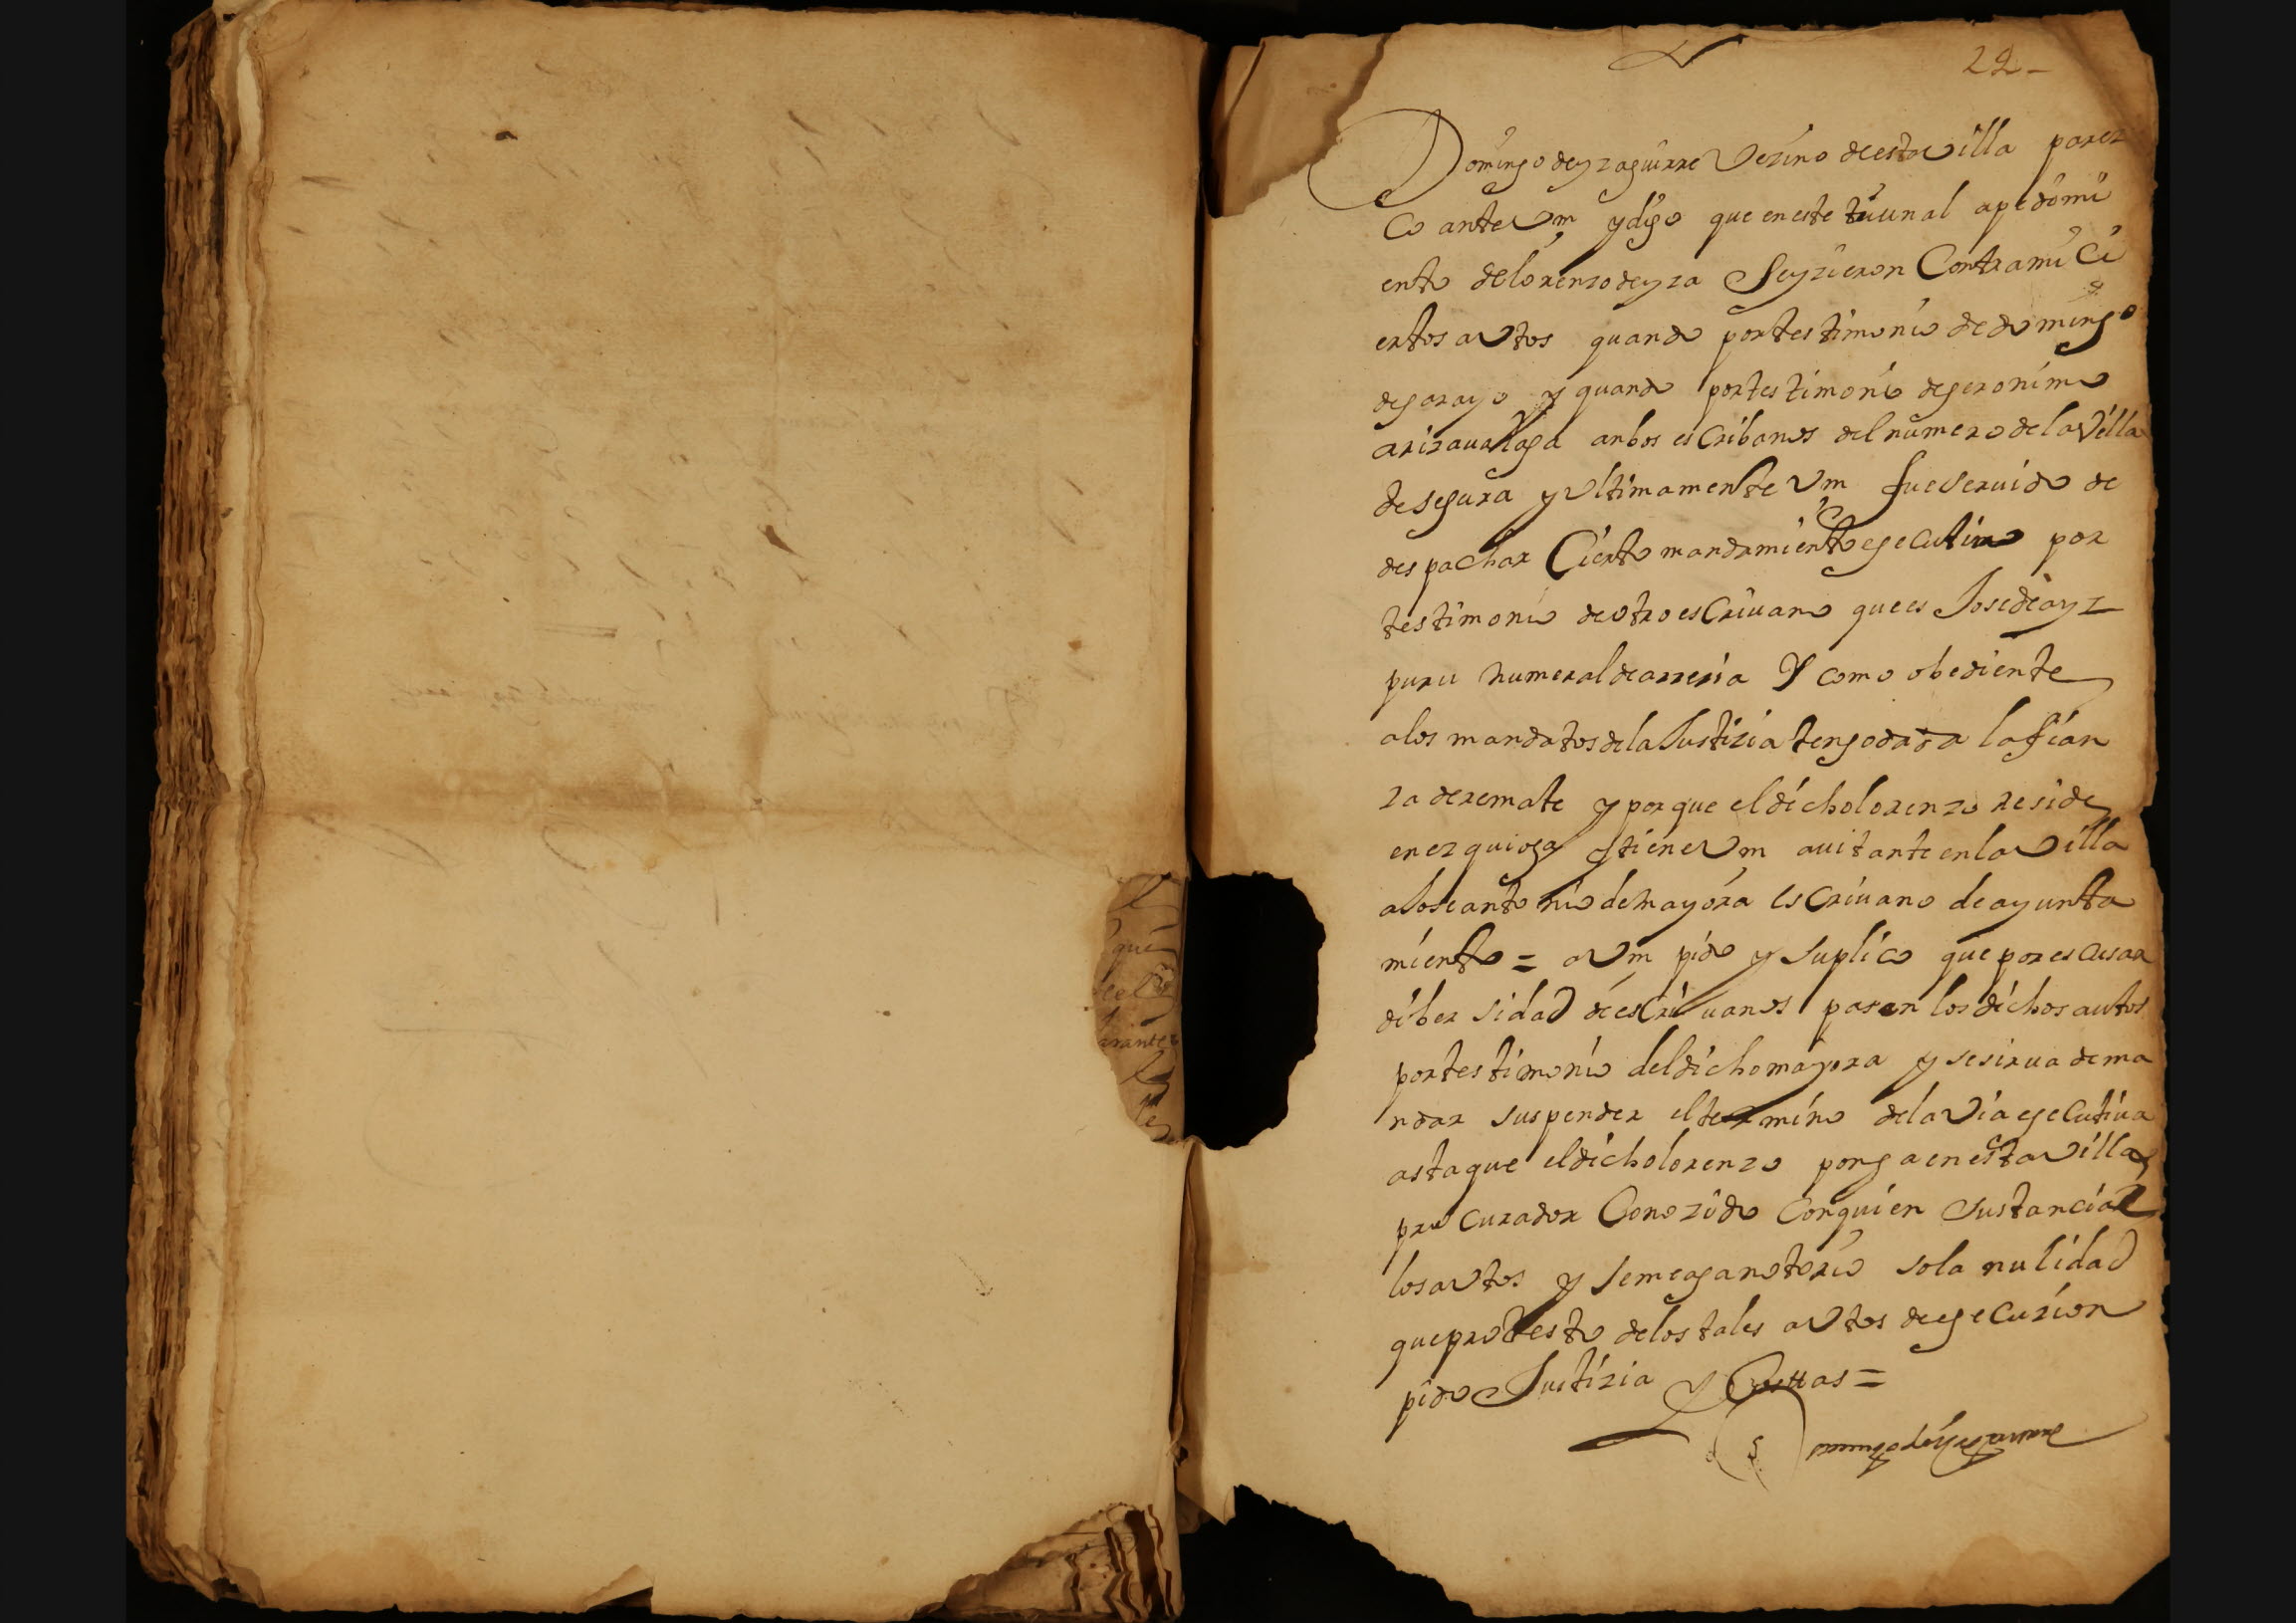 22-
Domingo de yzaguirre Vezino de esta villa parez
Co ante Vm y digo que en este triunal a pedimi
ento de lorenzo de yza Se yzieron Contra mi Ci
ertos avtos quando por testimonio de domingo
de garayo y quando por testimonio de geronimo
arizavalaga anbos esCribanos del numero de la Villa
de segura y Vltimamente Vm fue seruido de
despachar Cierto mandamiento egecutivo por
testimonio de otro esCriuano que es Jose de ayz
puru numeral de arreria Y como obediente
a los mandatos de la Justizia tengo dada la fian
za de remate y porque el dicho lorenzo reside
en ezquioga y tiene Vm auitante en la Villa
a Jose antonio de mayora esCriuano de ayunta
miento = a Vm pido y suplico que por escusar
diber sidad de esCriuanos pasen los dichos autos
por testimonio del dicho mayora y se sirua de ma
ndar suspender el termino de la Via egecutiua
asta que el dicho lorenzo ponga en esta Villa
procurador Conozido Con quien sustanciar
los avtos y se me aga notorio so la nulidad
que protesto de los tales avtos de egecuzion
pido Justizia y Costtas =
Domingo de yzaguirre
que